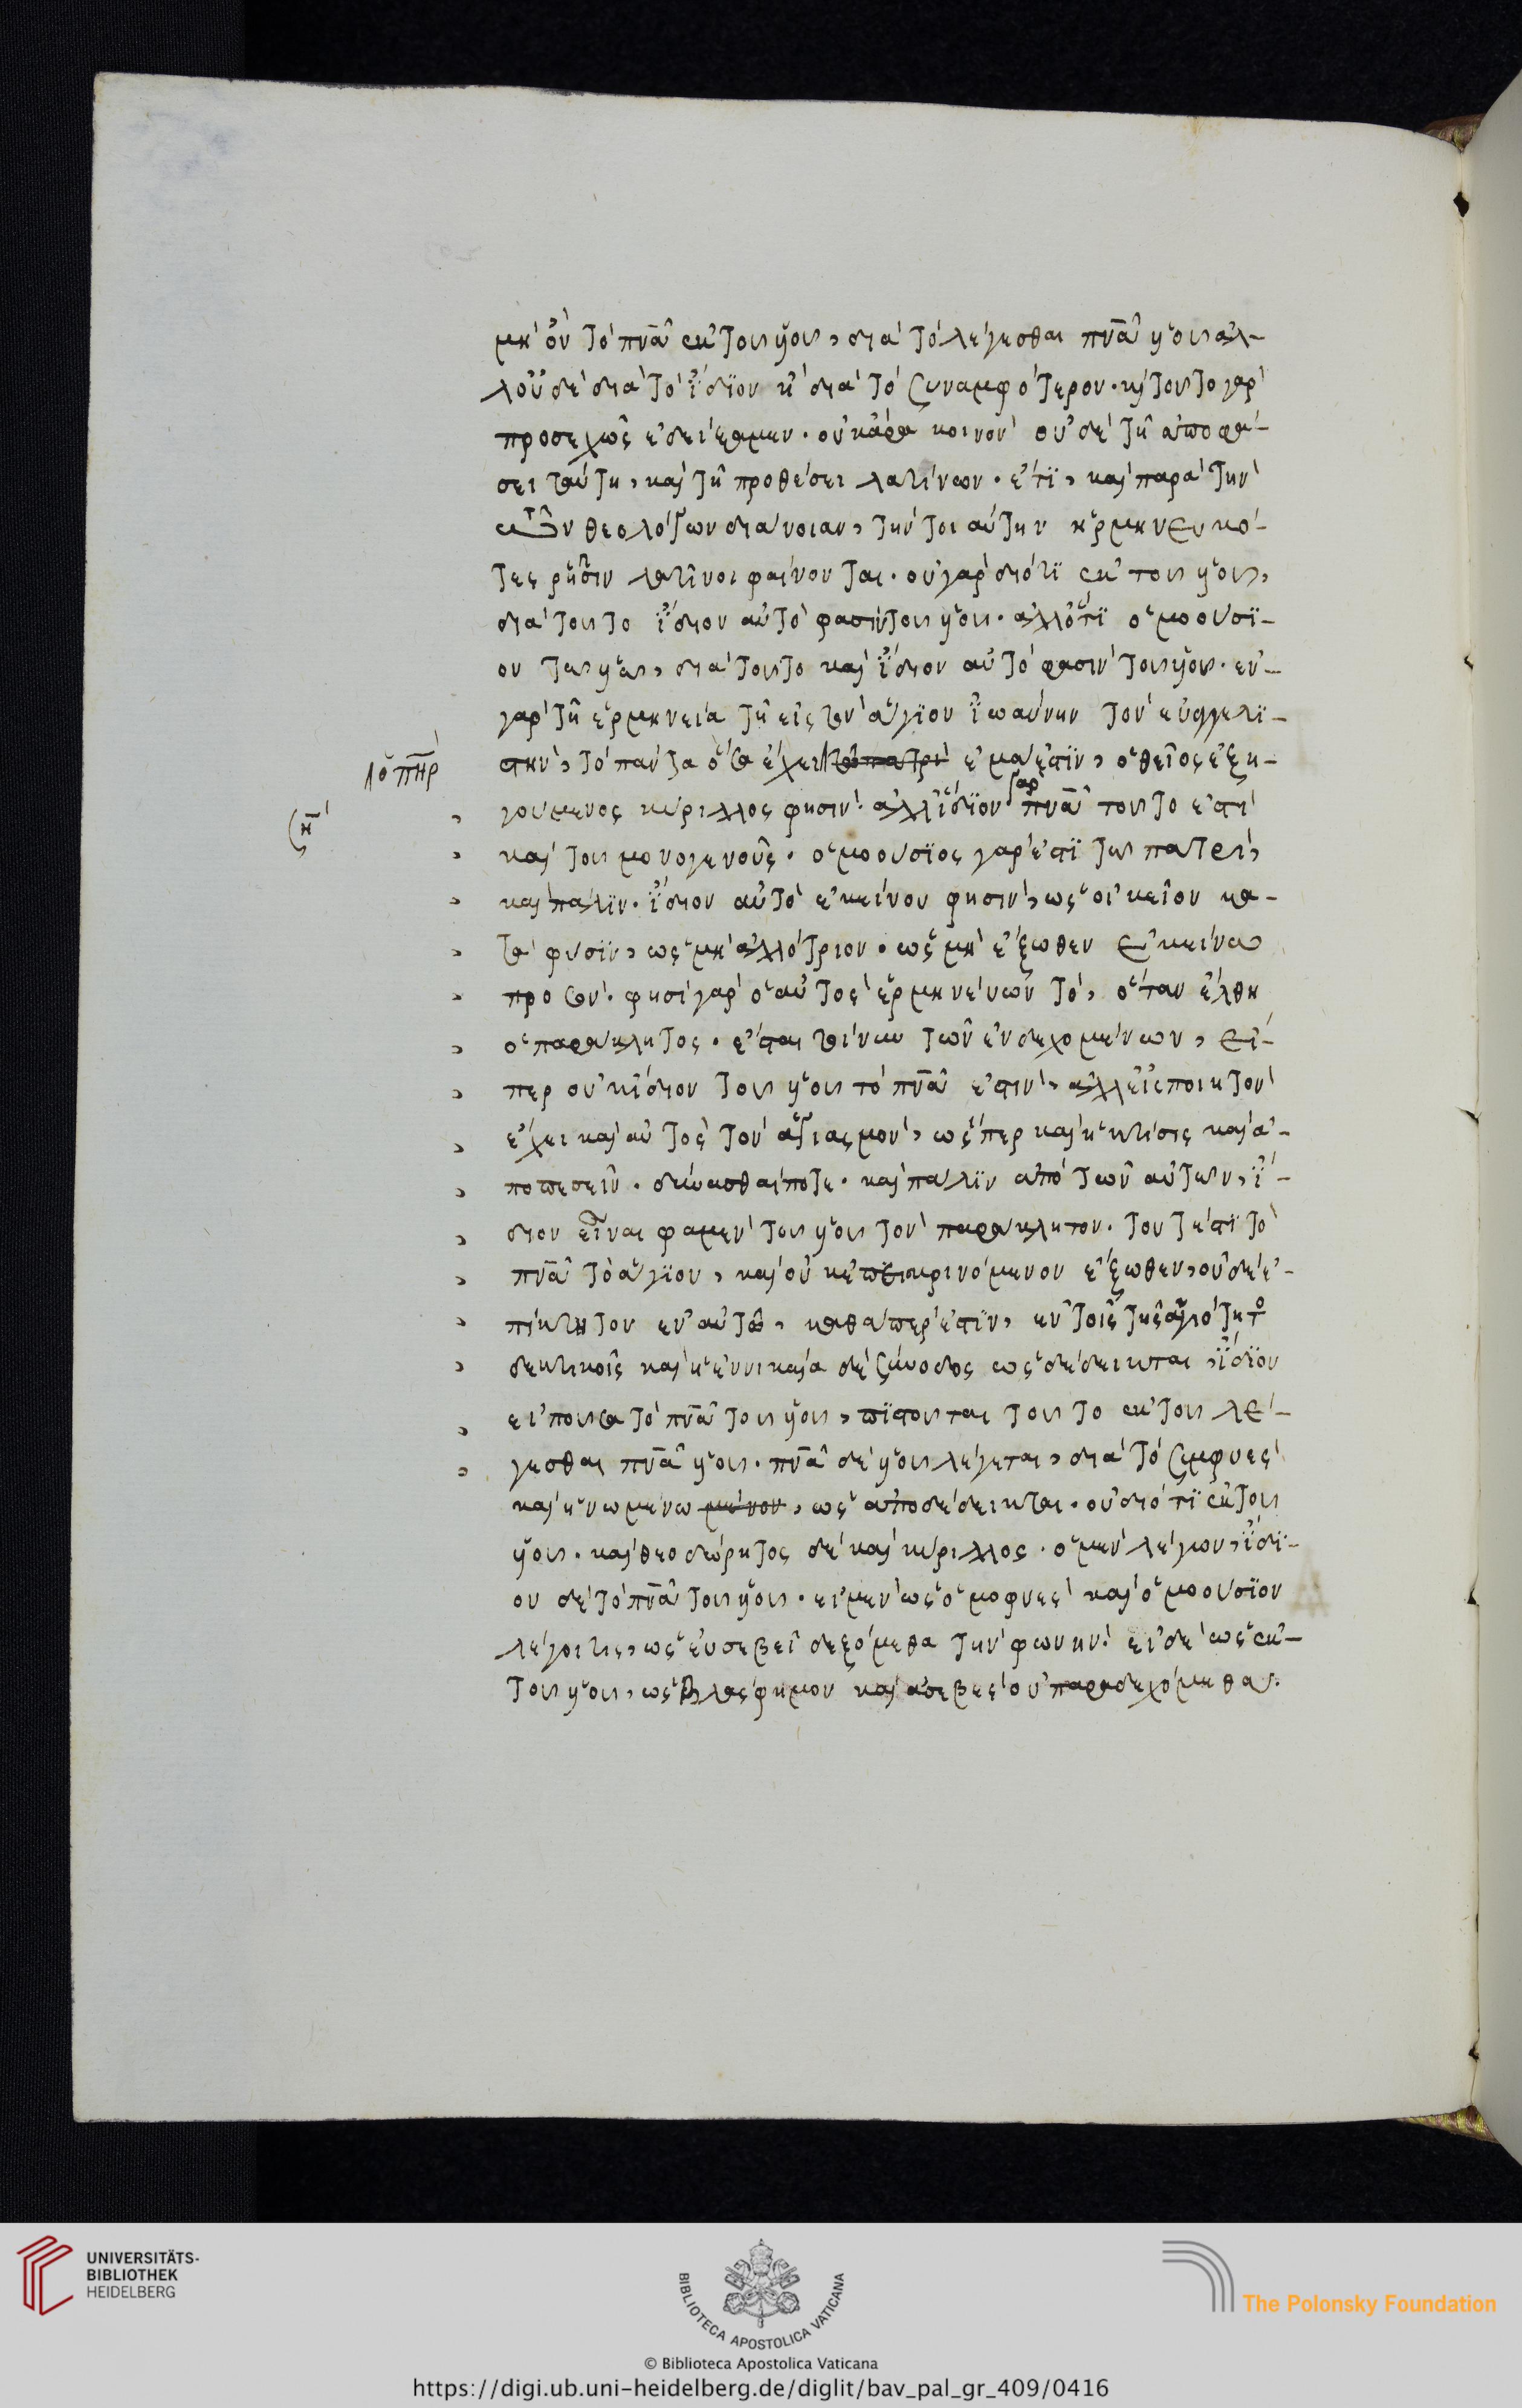 μὴ ὂν τὸ πν̅α ἐκ τοῦ υἱοῦ, διὰ τὸ λέγεσθαι πν̅α υἱοῦ ἀλ-
λ' οὐδὲ διὰ τὸ ἴδϊον ἢ διὰ τὸ συναμφότερον. κ(αὶ) τοῦτο γὰρ
προσεχῶς ἐδείξαμεν. οὐκ ἄρα κοινὸν οὐδὲ τῇ ἀποφά-
σει ταύτῃ, καὶ τῇ προθέσει λατίνων. ἔτϊ, καὶ παρὰ τὴν
τῶν θεολόγων διάνοιαν, τὴν τοιαύτην ἡρμηνευκό-
τες ῥῆσιν λατῖνοι φαίνονται. οὐ γὰρ διότϊ ἐκ τοῦ υἱοῦ,
διὰ τοῦτο ἴδιον αὐτὸ φασὶν τοῦ υἱοῦ. ἀλλ' ὅτϊ ὁμοούσϊ-
ον τῶ υἱῶ, διὰ τοῦτο καὶ ἴδιον αὐτό φασιν τοῦ υἱοῦ. ἐν
γὰρ τῇ ἑρμηνεία τῇ εἰς τὸν ἅγϊον ἰωάννην τὸν εὐαγγελϊ-
στὴν, τὸ πάντα ὅσα ἔχει τῶ πατρὶ ἐμά ἐστϊν, ὁ θεῖος ἐξη-
λ ὁ π̅η̅ρ̅
γούμενος κύριλλος φησίν. ἀλλ' ἴδϊον γὰρ πν̅α τοῦτο ἐστὶ
καὶ τοῦ μονογενοῦς. ὁμοούσϊος γάρ ἐστϊ τῶ πατρὶ,
καὶ πάλϊν. ἴδιον αὐτὸ ἐκείνου φησὶν, ὡς οἰκεῖον κα-
τὰ φύσϊν, ὡς μὴ ἀλλότριον. ὡς μὴ ἔξωθεν ἐκείνω
προσὸν. φησὶ γὰρ ὁ αὐτὸς ἑρμηνεύων τὸ, ὅταν ἔλθη
ὁ παράκλητος. ἔσται τίνων τῶν ἐνδεχομένων, εἴ-
περ οὐκ ἴδιον τοῦ υἱοῦ τὸ πν̅α ἐστὶν, ἀλλ' εἰσποιητὸν
ἔχει καὶ αὐτὸς τὸν ἁγιασμὸν, ὥσπερ καὶ ἡ κτίσις καὶ ἀ-
ποπεσεῖν. δεύεσθαί ποτε. καὶ πάλϊν ἀπὸ τῶν αὐτῶν, ἴ-
διον εἶναι φαμὲν τοῦ υἱοῦ τὸν παράκλητον. τουτέστϊ τὸ
πν̅α τὸ ἅγϊον, καὶ οὐκ ἐπεισκρινόμενον ἔξωθεν, οὐδὲ ἐ-
πίκτητον ἐν αὐτῶ, καθάπερ ἐστϊν, ἐν τοῖς τῆς ἁγιότητο
δεκτικοῖς καὶ ἡ ἐννικαία δὲ σύνοδος ὡς δέδεικται, ἴδϊον
εἰποῦσα τὸ πν̅α τοῦ υἱοῦ, πϊστοῦται τοῦτο ἐκ τοῦ λέ-
γεσθαι πν̅α υἱοῦ. πν̅α δὲ υἱοῦ λέγεται, διὰ τὸ συμφυὲς
καὶ ἡνωμένω μένον, ὡς ἀποδέδεικται. οὐ διότϊ ἐκ τοῦ
υἱοῦ. καὶ θεοδώρητος δὲ καὶ κύριλλος. ὁ μὲν λέγων, ἴδϊ-
ον δὲ τὸ πν̅α τοῦ υἱοῦ. εἰ μὲν ὡς ὁμοφυὲς καὶ ὁμοούσϊον
λέγοι τις, ὡς εὐσεβεῖ δεξόμεθα τὴν φωνήν. εἰ δὲ ὡς ἐκ
τοῦ υἱοῦ, ὡς βλάσφημον καὶ ἀσεβὲς οὐ παραδεχόμεθα.
UNIVERSITÄTS-
BIBLIOTHEK
HEIDELBERG
BIBLIOTECA APOSTOLICA VATICANA
The Polonsky Foundation
© Biblioteca Apostolica Vaticana
https://digi.ub.uni-heidelberg.de/diglit/bav_pal_gr_409/0416